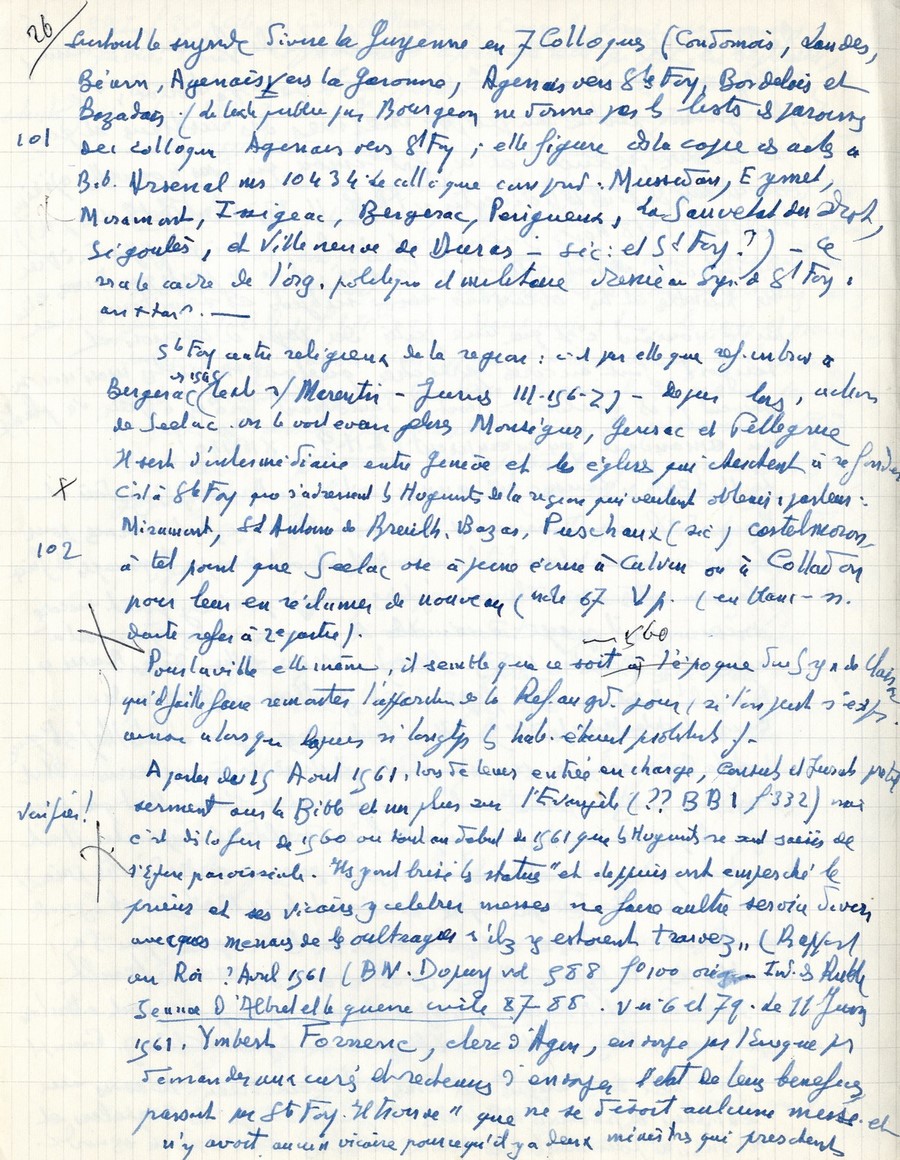 26
surtout le synode divise la Guyenne en 7 Colloques (Condomois, Landes,
Béarn, Agenais vers la Garonne, Agenais vers Ste Foy, Bordelais et
Bazadais. (le texte publié par Bourgeon ne donne pas la liste des paroisses
101
du colloque Agenais vers Ste Foy ; elle figure ds la copie des actes à
Bib. Arsenal ms 10434. Le colloque comprend : Mussidan, Eymet,
Miramont, Issigeac, Bergerac, Perigueux, La Sauvetat du Drot,
Sigoulès, et Villeneuve de Duras – sic : et Ste Foy ?) – Ce
sera le cadre de l'org. politique et militaire dressée au Syn. de Ste Foy.
Ste Foy centre religieux de la region : c'est par elle que ref. entre à
Bergerac (texte Marentin – Genève III-156-7) – depuis lors, action
de Seelac. on le voit evangeliser Monségur, Gensac et Pellegrue
Il sert d'intermédiaire entre Genève et les églises qui cherchent à se fonder
X
c'est à Ste Foy que s'adressent les Huguenots de la region qui veulent obtenir 1 pasteur :
Miramont, St Antoine de Breuilh, Bazas, Puschaux (sic) Castelmoron,
102
à tel point que Seelac ose à peine écrire à Calvin ou à Colladon
pour leur en réclamer de nouveau (note 67 V p. (en blanc –
doute refer à 2e partie).
1560
Pour la ville elle même, il semble que ce soit à l'époque du Syn de Clairac
qu'il faille faire remonter l'apparition de la Ref. au gd. jour (si l'on peut s'exp.
ainsi alors que depuis si longtps les hab. étaient protestants).
A partir du 15 Aout 1561, lors de leur entrée en charge, Consuls et Jurats prêtent
verifier!
serment sur la Bible et non plus sur l'Evangile (?? BB1 f°332) mais
c'est dès la fin de 1560 ou tout au début de 1561 que les Huguenots se sont saisis de
l'Eglise paroissiale. "Ils y ont brisé les statues" et deppuis ont empesché le
prieur et ses vicaires y celebrer messes ne faire aultre service divin
avecques menaces de les oultrager s'ilz y estoient trouvez" (Rapport
au Roi ? Avril 1561 (BN. Dupuy vol 588 f°100 orig – Ind. ds Ruble
Jeanne d'Albret et la guerre civile 87-88. V. n. 6 et 79. Le 11 Juin
1561. Ymbert Forneric, clerc d'Agen, envoyé par l'Eveque pr
demander aux curés et recteurs d'envoyer l'etat de leurs benefices
passant par Ste Foy. Il trouve "que ne se disoit aulcune messe et
n'y avoit aucun vicaire pource qu'il y a deux ministres qui preschent